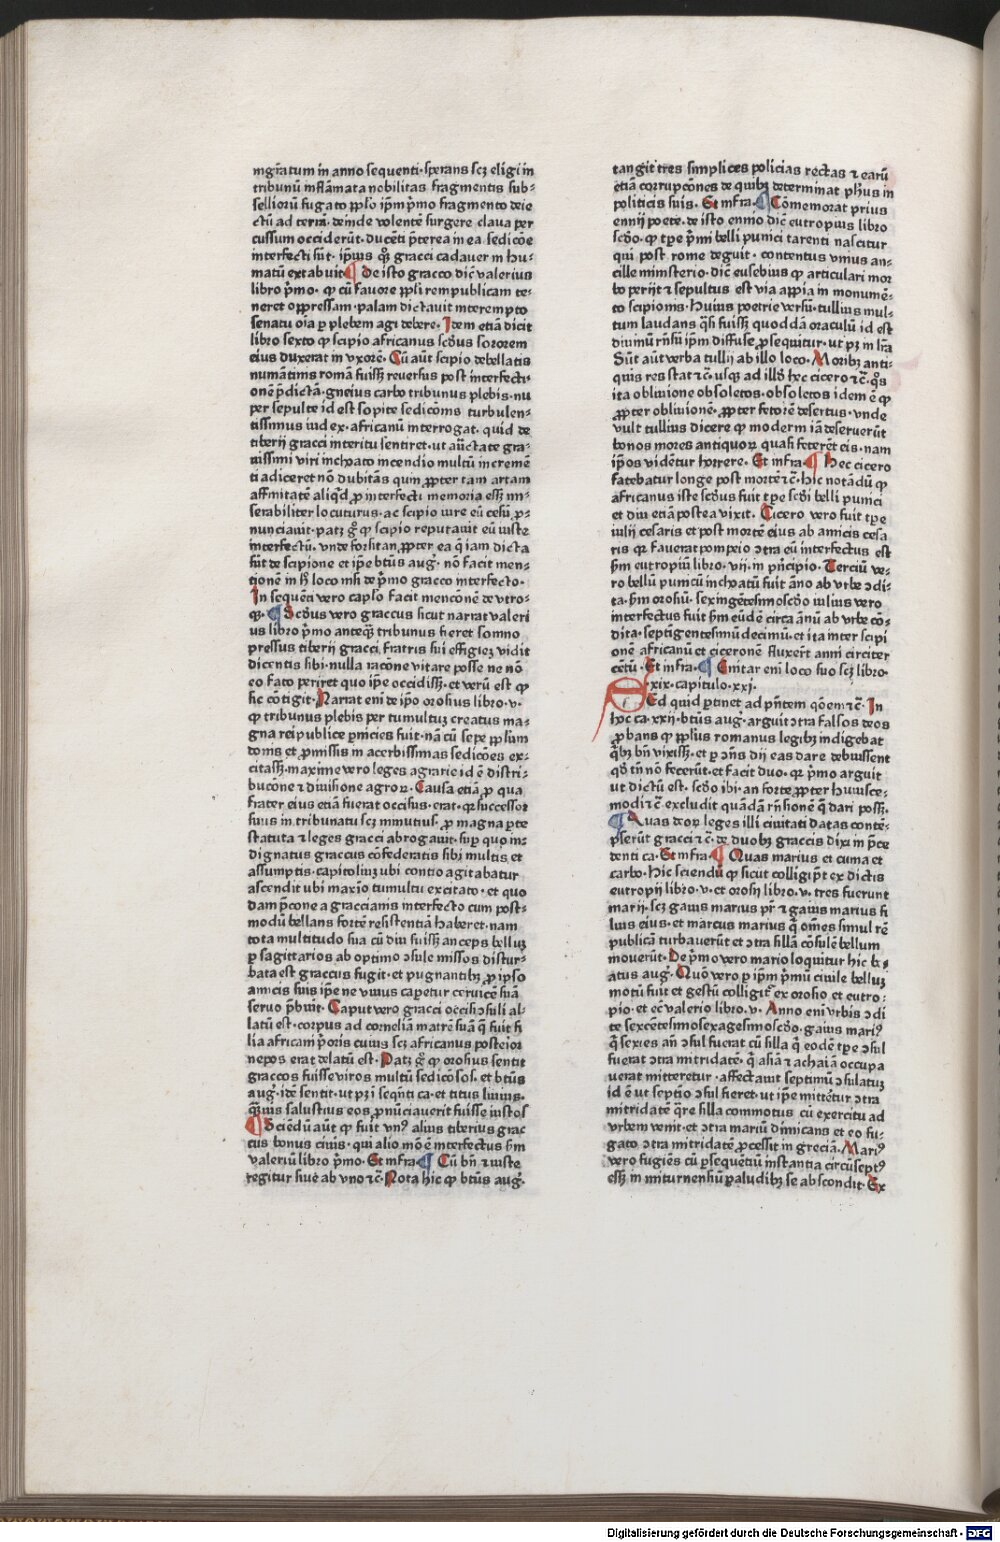 mgr̄atum in anno sequenti·sperans scꝫ eligi in
tribunū inflāmata nobilitas fragmentis sub-
selliorū fugato pplo ip̄m p̄mo fragmento deie
ctū ad terrā·deinde volente surgere claua per
cussum occiderūt·ducēti p̄terea in ea sediciōe
interfecti sūt· ip̄ius qꝫ gracci cadauer in hu-
matū extabuit ¶ de isto gracco dic̄ valerius
libro p̄mo· ꝙ cū fauore ppli rempublicam te-
neret oppressam·palam dictauit interempto
senatu oīa ꝑ plebem agi debere· Idem etiā dicit
libro sexto ꝙ scipio africanus scd̄us sororem
eius duxerat in vxorē· Cū aūt scipio debellatis
numātinis romā fuissꝫ reuersus post interfecti-
onē p̄dictā·gneius carbo tribunus plebis·nu
per sepulte id est sopite sedicionis turbulen-
tissimus iud ex·africanū interrogat· quid de
tiberij gracci interitu sentiret·ut au̅ctate gra-
uissimi viri inchoato incendio multū incremē
ti adiceret nō dubitās quin ꝓpter tam artam
affinitatē aliq̄d ꝓ interfecti memoria essꝫ mi-
serabiliter locuturus·ac scipio iure eū cesū ꝓ-
nunciauit·patꝫ g̊ ꝙ scipio reputauit eū iuste
interfectū·vnde forsitan ꝓpter ea q̄ iam dicta
sūt de scipione et ip̄e btūs aug· nō facit men-
tionē in h̄ loco nisi de p̄mo gracco interfecto·
In sequēti vero cap̄lo facit mencōnē de vtro-
qꝫ· ¶ Scd̄us vero graccus sicut narrat valeri
us libro p̄mo anteqꝫ tribunus fieret somno
pressus tiberij gracci fratris sui effigieꝫ vidit
dicentis sibi·nulla racōne vitare posse ne nō
eo fato periret quo ip̄e occidissꝫ·et verū est ꝙ
sic cōtigit· Narrat eni̅ de ip̄o orosius libro·v·
ꝙ tribunus plebis per tumultuꝫ creatus ma-
gna reipublice ꝑnicies fuit·nā cū sepe ppl̄um
donis et ꝓmissis in acerbissimas sediciōes ex-
citassꝫ·maxime vero leges agrarie id ē distri-
bucōne ⁊ diuisione agroꝝ· Causa etiā ꝓ qua
frater eius etiā fuerat occisus·erat·qꝛ successor
suus in tribunatu scꝫ minutiuꝰ ꝓ magna ꝑte
statuta ⁊ leges gracci abrogauit·suꝑ quo in-
dignatus graccus cōfederatis sibi multis et
assumptis·capitoliuꝫ ubi contio agitabatur
ascendit ubi maxi̅o tumultu excitato·et quo
dam p̄cone a graccianis interfecto cum post-
modū bellans fortē resistentiā haberet·nam
tota multitudo sua cū diu fuissꝫ anceps belluꝫ
ꝑ sagittarios ab optimo ↄsule missos distur-
bata est graccus fugit·et pugnantibꝫ ꝓ ipso
amicis suis ip̄e ne viuus caperetur ceruicē suā
seruo p̄buit· Caput vero gracci occisi ↄsuli al-
latū est·corpus ad corneliā matrē suā q̄ fuit fi
lia africani p̄oris cuius scꝫ africanus posterior
nepos erat delatū est· Patꝫ g̊ ꝙ orosius sentit
graccos fuisse viros multū sedicōsos·et btūs
aug·idē sentit·ut pꝫ i seqn̄ti ca·et titus liuius·
qꝫuis salustius eos ꝓnūciauerit fuisse iustos
¶ Sciēdū aūt ꝙ fuit vnꝰ alius tiberius grac
cus bonus ciuis·qui alio mō ē interfectus s̄m
valeriū libro p̄mo· Et infra ¶ Cū bn̄ ⁊ iuste
regitur siue ab vno ⁊c̄· Nota hic ꝙ btūs aug·
tangit tres simplices policias rectas ⁊ earū
etiā corrupcōnes de quibꝫ determinat ph̄us in
politicis suis· Et infra· ¶ Cōmemorat prius
ennij poete·de isto ennio dic̄ eutropius libro
scd̄o·ꝙ tp̄e p̄mi belli punici tarenti nascitur
qui post rome deguit· contentus vnius an-
cille ministerio·dic̄ eusebius ꝙ articulari mor
bo perijt ⁊ sepultus est via appia in monumē-
to scipionis·Huius poetrie versū·tullius mul-
tum laudans q̄si fuissꝫ quoddā oraculū id est
diuinū rn̄sū ip̄m diffuse ꝓsequitur·ut pꝫ in lr̄a
Sūt aūt verba tullij ab illo loco· Moribꝫ anti-
quis res stat ⁊c̄·usqꝫ ad illd̄ hec cicero ⁊c̄·q̄s
ita obliuione obsoletos·obsoletos idem ē ꝙ
ꝓpter obliuionē·ꝓpter fetorē desertus·vnde
vult tullius dicere ꝙ moderni iā deseruerūt
bonos mores antiquoꝝ quasi feterēt eis·nam
ip̄os vidētur horrere· Et infra ¶ Hec cicero
fatebatur longe post mortē ⁊c̄·hic notādū ꝙ
africanus iste scd̄us fuit tp̄e scd̄i belli punici
et diu etiā postea vixit· Cicero vero fuit tp̄e
iulij cesaris et post mortē eius ab amicis cesa
ris qꝛ fauerat pompeio ↄtra eū interfectus est
s̄m eutropiū libro·vij·in p̄ncipio· Terciū ve-
ro bellū punicū inchoatū fuit āno ab vrbe ↄdi-
ta·s̄m orosiū·sexingētesimoscd̄o iulius vero
interfectus fuit s̄m eūdē circa ānū ab vrbe cō-
dita·septigentesimū decimū·et ita inter scipi
onē africanū et ciceronē fluxer̄t anni circiter
cētū· Et infra· ¶ Enitar eni̅ loco suo scꝫ libro·
·xix·capitulo·xxj·
SEd quid ꝑtinet ad pn̄tem qōem ⁊c̄· In
hoc ca·xxij·btūs aug·arguit ↄtra falsos deos
ꝓbans ꝙ ppl̄us romanus legibꝫ indigebat
q̄bꝫ bn̄ vixissꝫ·et ꝑ ↄn̄s dij eas dare debuissent
qd̄ tn̄ nō fecerūt·et facit duo·qꝛ p̄mo arguit
ut dictū est·scd̄o ibi·an forte ꝓpter huiusce-
modi ⁊c̄ excludit quādā rn̄sionē q̄ dari possꝫ·
¶ Quas deoꝝ leges illi ciuitati datas contē-
pserūt gracci ⁊c̄·de duobꝫ graccis dixi in p̄ce
denti ca·Et infra· ¶ Quas marius et cinna et
carbo·hic sciendū ꝙ sicut colligi p̄t ex dictis
eutropij libro·v·et orosij libro·v·tres fuerunt
marij·scꝫ gaius marius pr̄ ⁊ gaius marius fi
lius eius·et marcus marius q̄ om̄es simul rē
publicā turbauerūt et ↄtra sillā cōsulē bellum
mouerūt· De p̄mo vero mario loquitur hic be-
atus aug· Quō vero ꝑ ip̄m p̄mū ciuile belluꝫ
motū fuit et gestū colligit̄ ex orosio et eutro-
pio·et ec̄ valerio libro·v· Anno eni̅ vrbis ↄdi
te sexcētesimosexagesimoscd̄o·gaius mariꝰ
q̄ sexies an̄ ↄsul fuerat cū silla q̄ eodē tp̄e ↄsul
fuerat ↄtra mitridatē· q̄ asiā ⁊ achaiā occupa
uerat mitteretur·affectauit septimū ↄsulatuꝫ
id ē ut septi̅o ↄsul fieret·ut ip̄e mittētur ↄtra
mitridatē q̄re silla commotus cū exercitu ad
vrbem venit·et ↄtra mariū dimicans et eo fu-
gato ↄtra mitridatē ꝓcessit in greciā· Mariꝰ
vero fugiēs cū ꝑsequētiū instantia circūseptꝰ
essꝫ in miturnensiū paludibꝫ se abscondit· Ex
Digitalisierung gefördert durch die Deutsche Forschungsgemeinschaft - DFG